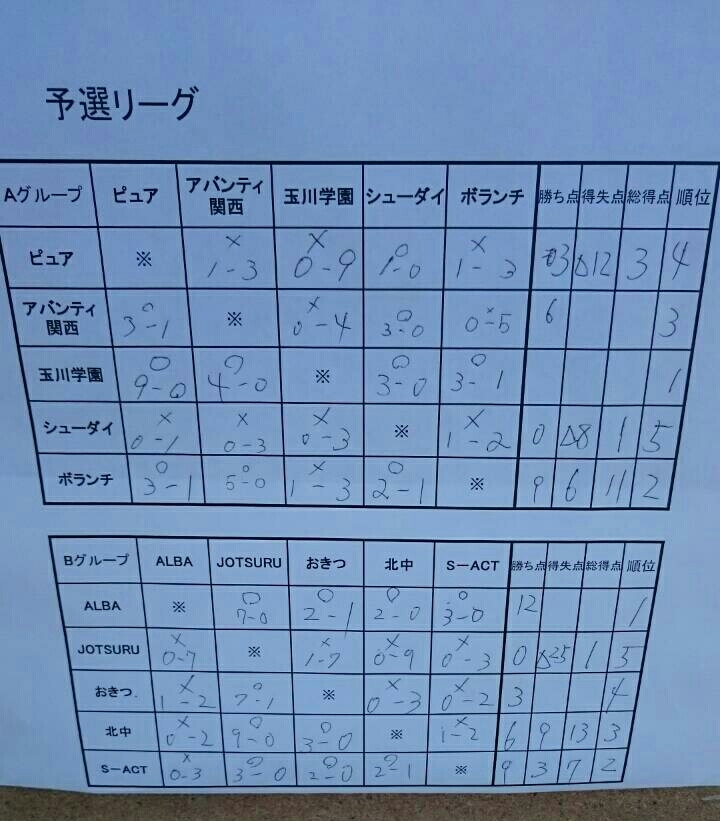 予選リーグ
Aグループ ピュア アバンティ関西 玉川学園 シューダイ ボランチ 勝ち点 得失点 総得点 順位
ピュア ※ × 1-3 × 0-9 ○ 1-0 × 1-3 3 △12 3 4
アバンティ関西 ○ 3-1 ※ × 0-4 ○ 3-0 × 0-5 6 3
玉川学園 ○ 9-0 ○ 4-0 ※ ○ 3-0 ○ 3-1 1
シューダイ × 0-1 × 0-3 × 0-3 ※ × 1-2 0 △8 1 5
ボランチ ○ 3-1 ○ 5-0 × 1-3 ○ 2-1 ※ 9 6 11 2
Bグループ ALBA JOTSURU おきつ 北中 S-ACT 勝ち点 得失点 総得点 順位
ALBA ※ ○ 7-0 ○ 2-1 ○ 2-0 ○ 3-0 12 1
JOTSURU × 0-7 ※ × 1-7 × 0-9 × 0-3 0 △25 1 5
おきつ × 1-2 ○ 7-1 ※ × 0-3 × 0-2 3 4
北中 × 0-2 ○ 9-0 ○ 3-0 ※ × 1-2 6 9 13 3
S-ACT × 0-3 ○ 3-0 ○ 2-0 ○ 2-1 ※ 9 3 7 2